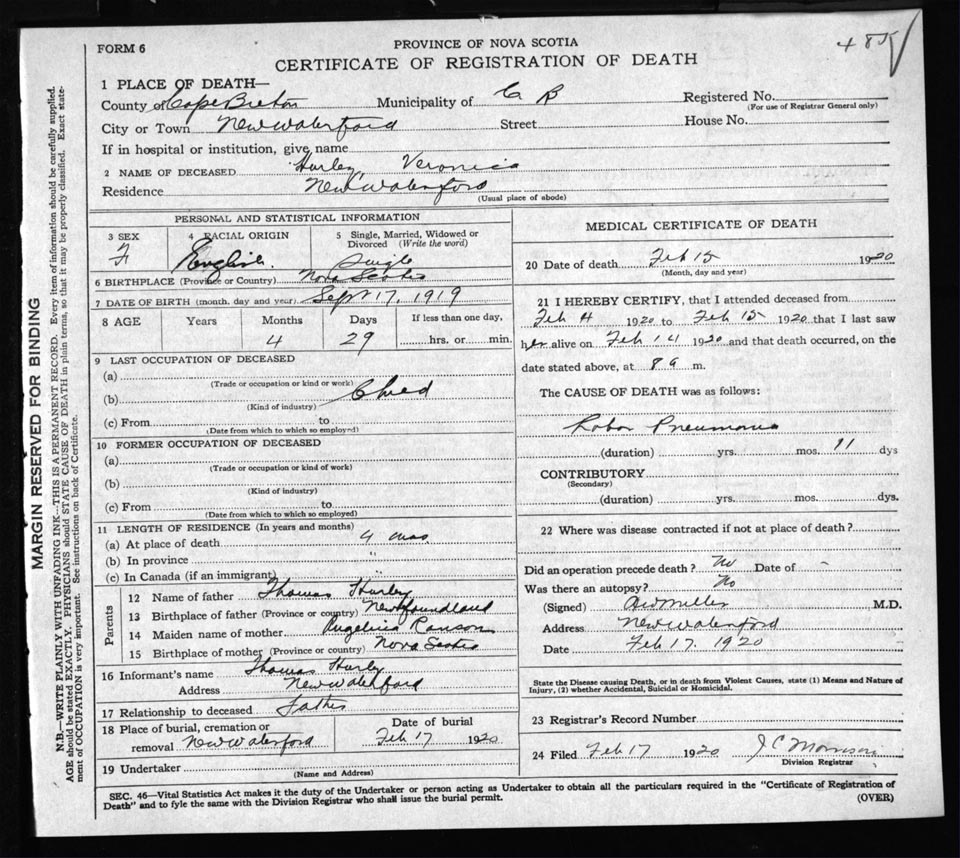 485
FORM 6
PROVINCE OF NOVA SCOTIA
CERTIFICATE OF REGISTRATION OF DEATH
1 PLACE OF DEATH—
County of Cape Breton Municipality of C B Registered No.
(For use of Registrar General only)
City or Town New Waterford Street House No.
If in hospital or institution, give name
2 NAME OF DECEASED Hurley, Veronica
Residence New Waterford
(Usual place of abode)
PERSONAL AND STATISTICAL INFORMATION
3 SEX 4 RACIAL ORIGIN 5 Single, Married, Widowed or
Divorced (Write the word)
F English. Single
6 BIRTHPLACE (Province or Country) Nova Scotia
7 DATE OF BIRTH (month, day and year) Sept 17, 1919
8 AGE Years Months Days If less than one day,
4 29 hrs. or min.
9 LAST OCCUPATION OF DECEASED
(a)
(Trade or occupation or kind or work)
(b) Child
(Kind of industry)
(c) From to
(Date from which to which so employed)
10 FORMER OCCUPATION OF DECEASED
(a)
(Trade or occupation or kind of work)
(b)
(Kind of industry)
(c) From to
(Date from which to which so employed)
11 LENGTH OF RESIDENCE (In years and months)
(a) At place of death 4 mos
(b) In province "
(c) In Canada (if an immigrant)
Parents
12 Name of father Thomas Hurley
13 Birthplace of father (Province or country) Newfoundland
14 Maiden name of mother Angelina Ranson
15 Birthplace of mother (Province or country) Nova Scotia
16 Informant's name Thomas Hurley
Address New Waterford
17 Relationship to deceased Father
18 Place of burial, cremation or Date of burial
removal New Waterford Feb 17 1920
19 Undertaker
(Name and Address)
MEDICAL CERTIFICATE OF DEATH
20 Date of death Feb 15 1920
(Month, day and year)
21 I HEREBY CERTIFY, that I attended deceased from
Feb 4 1920 to Feb 15 1920 that I last saw
her alive on Feb 14 1920 and that death occurred, on the
date stated above, at 8 a m.
The CAUSE OF DEATH was as follows:
Lobar Pneumonia
(duration) yrs. mos. 11 dys
CONTRIBUTORY
(Secondary)
(duration) yrs. mos. dys.
22 Where was disease contracted if not at place of death?
Did an operation precede death? No Date of -
Was there an autopsy? No
(Signed) Miller M.D.
Address New Waterford
Date Feb 17. 1920
State the Disease causing Death, or in death from Violent Causes, state (1) Means and Nature of
Injury, (2) whether Accidental, Suicidal or Homicidal.
23 Registrar's Record Number
24 Filed Feb 17 1920 J C Morrison
Division Registrar
SEC. 46—Vital Statistics Act makes it the duty of the Undertaker or person acting as Undertaker to obtain all the particulars required in the "Certificate of Registration of
Death" and to fyle the same with the Division Registrar who shall issue the burial permit.
(OVER)
MARGIN RESERVED FOR BINDING
N.B.—WRITE PLAINLY WITH UNFADING INK—THIS IS A PERMANENT RECORD. Every item of information should be carefully supplied.
AGE should be stated EXACTLY. PHYSICIANS should STATE CAUSE OF DEATH in plain terms, so that it may be properly classified. Exact state-
ment of OCCUPATION is very important. See instructions on back of Certificate.